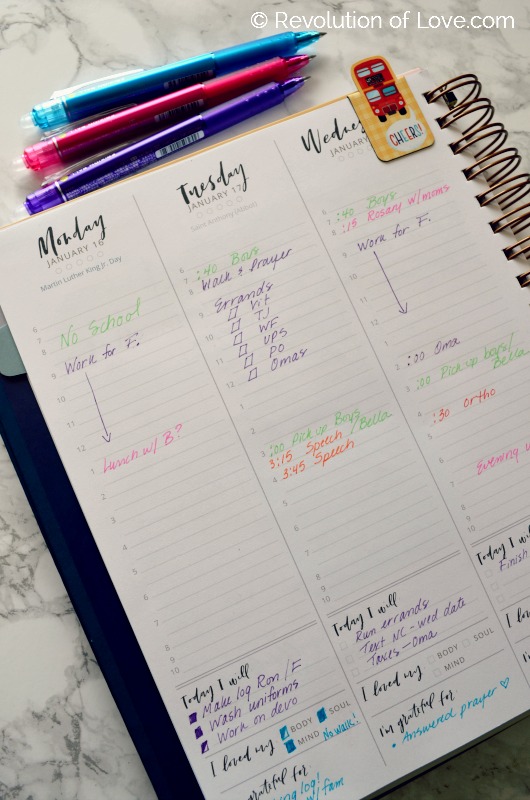 © Revolution of Love.com
CHEERS!
Monday
JANUARY 16
Martin Luther King Jr. Day
6
7
No School
8
9
Work for F.
10
11
12
Lunch w/ B?
1
2
3
4
5
6
7
8
9
10
Today I will
Make log Ron/F
Wash uniforms
Work on devo
I loved my BODY SOUL
MIND No walk!
grateful for:
log!
w/ fam
Tuesday
JANUARY 17
Saint Anthony (Abbot)
6
7 :40 Boys
8 Walk & Prayer
9 Errands
Vit
10 TJ
WF
11 UPS
PO
12 Omas
1
2
3 :00 Pick up Boys/Bella
3:15 Speech
4 3:45 Speech
5
6
7
8
9
10
Today I will
Run errands
Text NC-wed date
Taxes-Oma
I loved my BODY SOUL
MIND
I'm grateful for:
• Answered prayer ♡
Wednes
JANUARY
6
7 :40 Boys
8 :15 Rosary w/ moms
9 Work for F.
10
11
12
1
2 :00 Oma
3 :00 Pick up boys/
Bella
4 :30 ortho
5
6
Evening
7
8
9
10
Today I
Finish
I loved
I'm